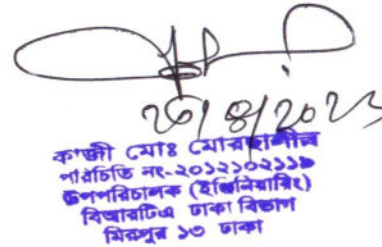 ২৬/৪/২০২৩
কাজী মোঃ মোরছালীন
পরিচিতি নং-২০১২১০২১১৯
উপপরিচালক (ইঞ্জিনিয়ারিং)
বিআরটিএ ঢাকা বিভাগ
মিরপুর ১৩ ঢাকা